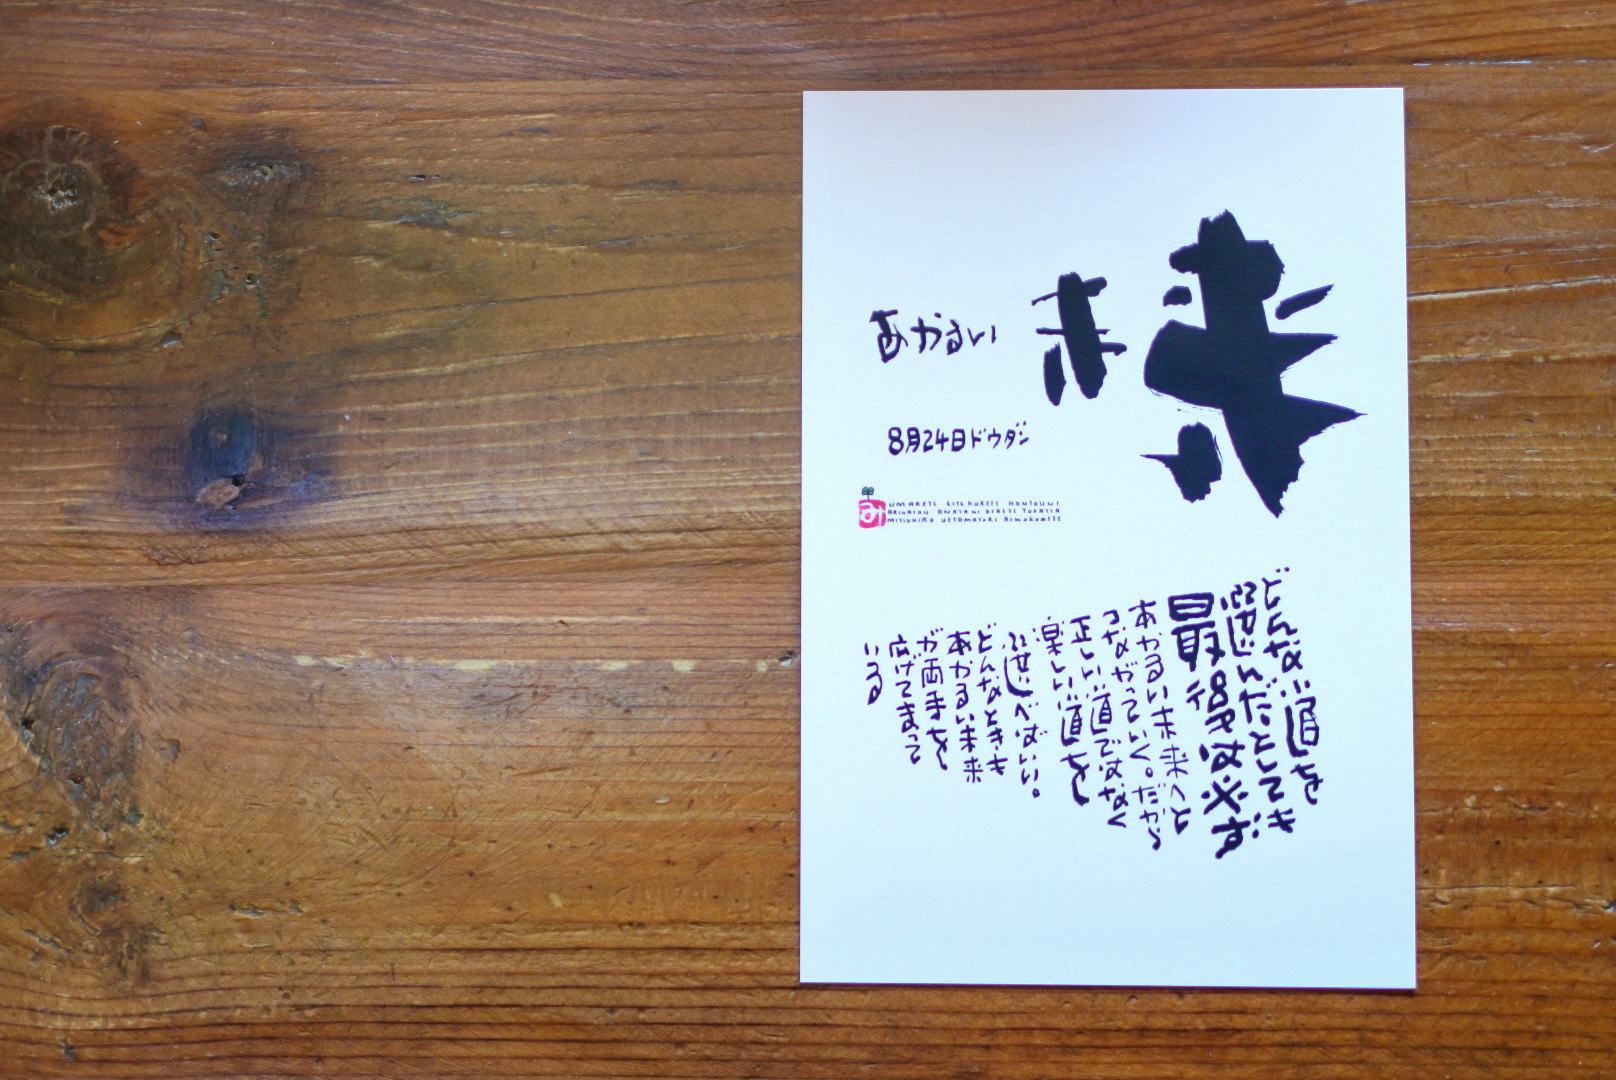 あかるい未来
8月24日ドウダン
み
UMARETE KITEKURETE HONTOUNI
ARIGATOU ANATANI DEAETE YOKATTA
どんな道を
選んだとしても
最後は必ず
あかるい未来へと
つながっていく。だから
正しい道ではなく
楽しい道を
選べばいい。
どんなときも
あかるい未来
が両手を
広げてまって
いる